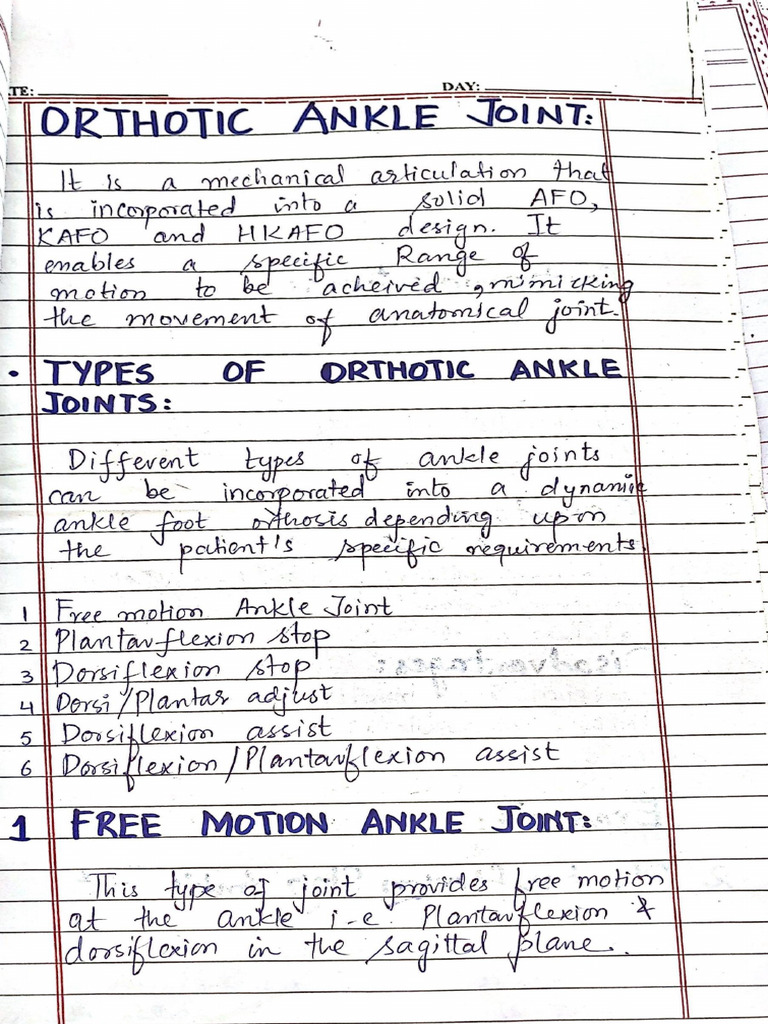 TE:
DAY:
ORTHOTIC ANKLE JOINT:
It is a mechanical articulation that
is incorporated into a solid AFO,
KAFO and HKAFO design. It
enables a specific Range of
motion to be acheived, mimicking
the movement of anatomical joint.
• TYPES OF ORTHOTIC ANKLE
JOINTS:
Different types of ankle joints
can be incorporated into a dynamic
ankle foot orthosis depending upon
the patient's specific requirements.
1 Free motion Ankle Joint
2 Plantarflexion stop
3 Dorsiflexion stop
4 Dorsi/Plantar adjust
5 Dorsiflexion assist
6 Dorsiflexion/Plantarflexion assist
1 FREE MOTION ANKLE JOINT:
This type of joint provides free motion
at the ankle i-e Plantarflexion &
dorsiflexion in the sagittal plane.